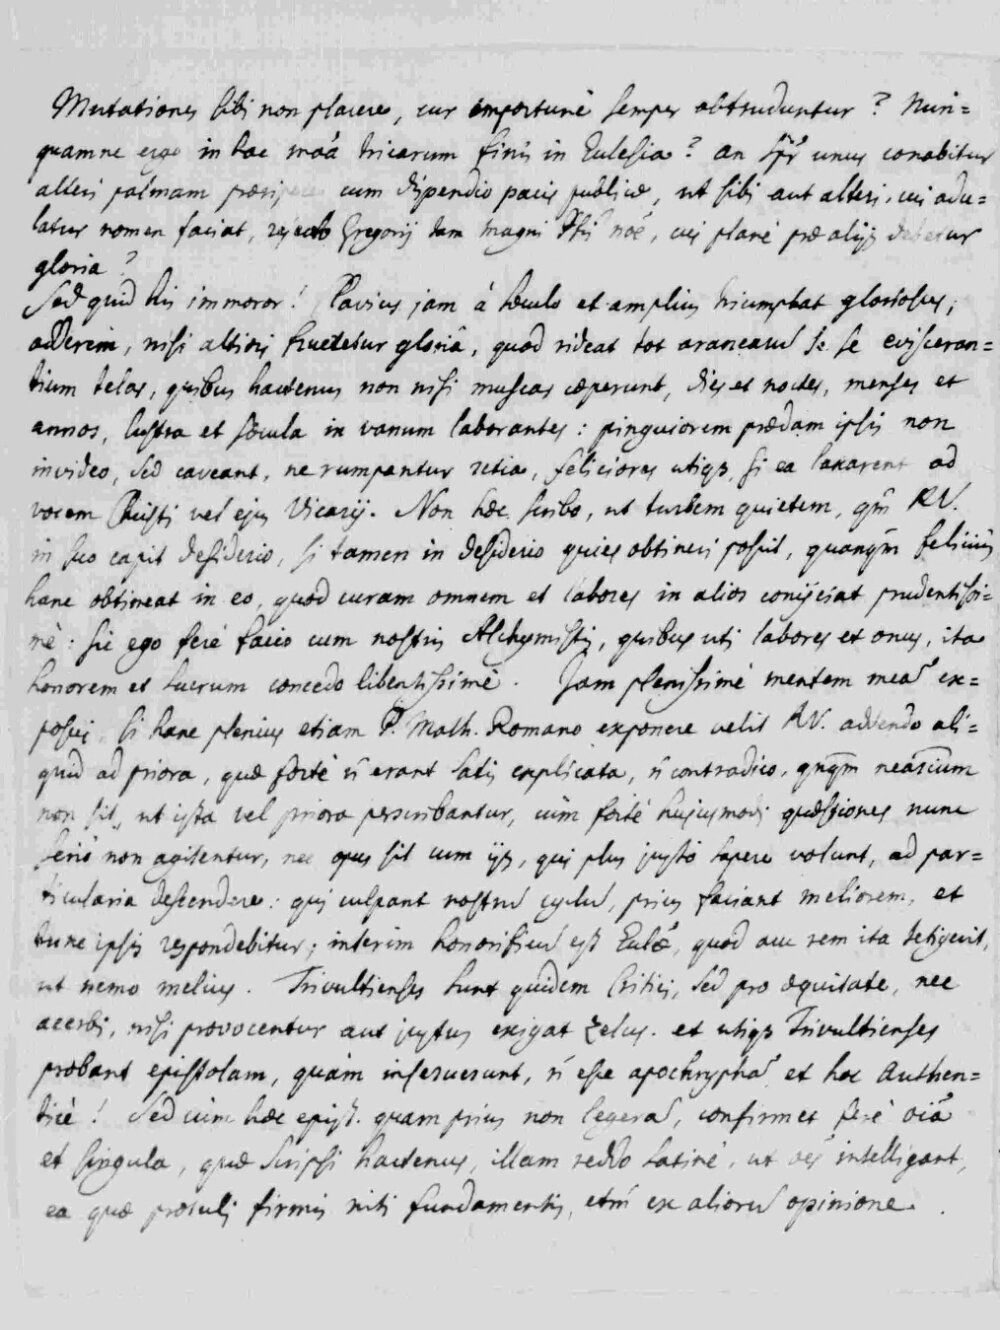 Mutationes sibi non placere, cur importunè semper obtruduntur? Nun=
quamne ergo in hac m̄ā tricarum finis in Ecclesia? an sp̄r unus conabitur
alteri palmam præripere cum dispendio pacis publicæ, ut sibi aut alteri, cui adu=
latur nomen faciat, rejecto Gregorij tam magni Pt̄is nōe, cui planè præ alijs debetur
gloria?
Sed quid his immoror! Clavius jam à sæculo et amplius triumphat gloriosus;
adderem, nisi altiori frueretur gloriâ, quod rideat tot araneaū se se evisceran=
tium telas, quibus hactenus non nisi muscas cæperunt, dies et noctes, menses et
annos, lustra et sæcula in vanum laborantes: pinguiorem prædam ipsis non
invideo, sed caveant, ne rumpantur retia, feliciores utiqȝ si ea laxarent ad
vocem Christi vel ejus Vicarij. Non hæc scribo, ut turbem quietem, qm̄ RV.
in suo capit desiderio, si tamen in desiderio quies obtineri possit, quanqm̄ felicius
hanc obtineat in eo, quod curam omnem et labores in alios conijciat prudentissi=
mè: sic ego ferè facio cum nostris Alchymistis, quibus uti labores et onus, ita
honorem et lucrum concedo libentissimè. Jam plenissimè mentem meā ex=
posui, si hanc plenius etiam P. Math. Romano exponere velit RV. addendo ali=
quid ad priora, quæ fortè n̄ erant satis explicata, n̄ contradico, qnqm̄ neārium
non sit, ut ista vel priora perscribantur, cùm fortè hujusmodi quæstiones nunc
seriò non agitentur, nec opus sit cum ijs, qui plus justo sapere volunt, ad par=
ticularia descendere: qui culpant nostrū cyclū, prius faciant meliorem, et
tunc ipsis respondebitur; interim honorificū est Eccl̄æ, quod acu rem ita tetigerit,
ut nemo melius. Trivultienses sunt quidem Critici, sed pro æquitate, nec
acerbi, nisi provocentur aut justus exigat zelus. et utiqȝ Trivultienses
probant epistolam, quam inseruerunt, n̄ esse apochryphā et hoc Authen=
ticè! Sed cùm hæc epist. quam prius non legerā, confirmet ferè oīa
et singula, quæ scripsi hactenus, illam reddo latinè, ut oēs intelligant,
ea quæ protuli firmis niti fundamentis, etm̄ ex aliorū opinione.